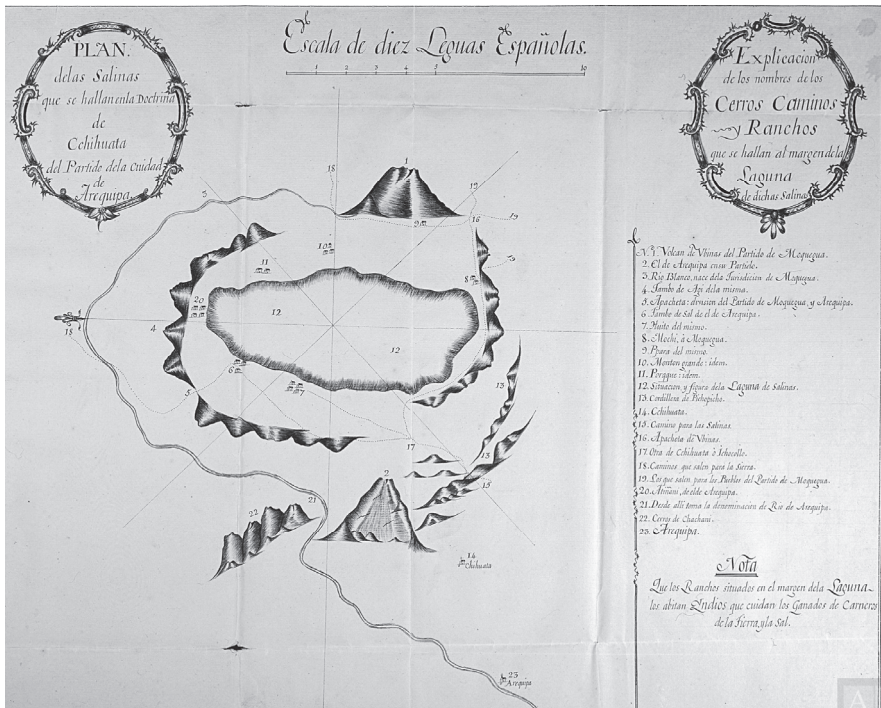 PLAN.
delas Salinas
que se hallan enla Doctrina
de
Cchihuata
del Partido dela Cuidad
de
Arequipa
Escala de diez Leguas Españolas.
1 2 3 4 5 10
Explicacion
de los nombres de los
Cerros Caminos
y Ranchos
que se hallan al margen dela
Laguna
de dichas Salinas
N. 1 Volcan de Vbinas del Partido de Moquegua.
2. El de Arequipa en su Partido.
3. Rio Blanco, nace dela Jurisdicion de Moquegua.
4. Tambo de Agi dela misma.
5. Apacheta: division del Partido de Moquegua y Arequipa.
6. Tambo de Sal de el de Arequipa.
7. Huito del mismo.
8. Mochi, à Moquegua.
9. Ppara del mismo.
10. Monton grande: idem.
11. Porqque: idem.
12. Situacion y figura dela Laguna de Salinas.
13. Cordillera de Pichupicho.
14. Cchihuata.
15. Camino para las Salinas.
16. Apacheta de Vbinas.
17. Otra de Cchihuata ò Ichocollo.
18. Caminos que salen para la Sierra.
19. Los que salen para los Pueblos del Partido de Moquegua.
20. de el de Arequipa.
21. Desde alli toma la denominacion de Rio de Arequipa.
22. Cerros de Chachani.
23. Arequipa.
Nota
Que los Ranchos situados en el margen dela Laguna
los abitan Indios que cuidan los Ganados de Carneros
de la Sierra, y la Sal.
18
1
19
3
16
19
9
10
11
8
19
20
12
12
4
18
6
7
13
5
17
13
15
2
21
22
14
Chihuata
23
Arequipa
A